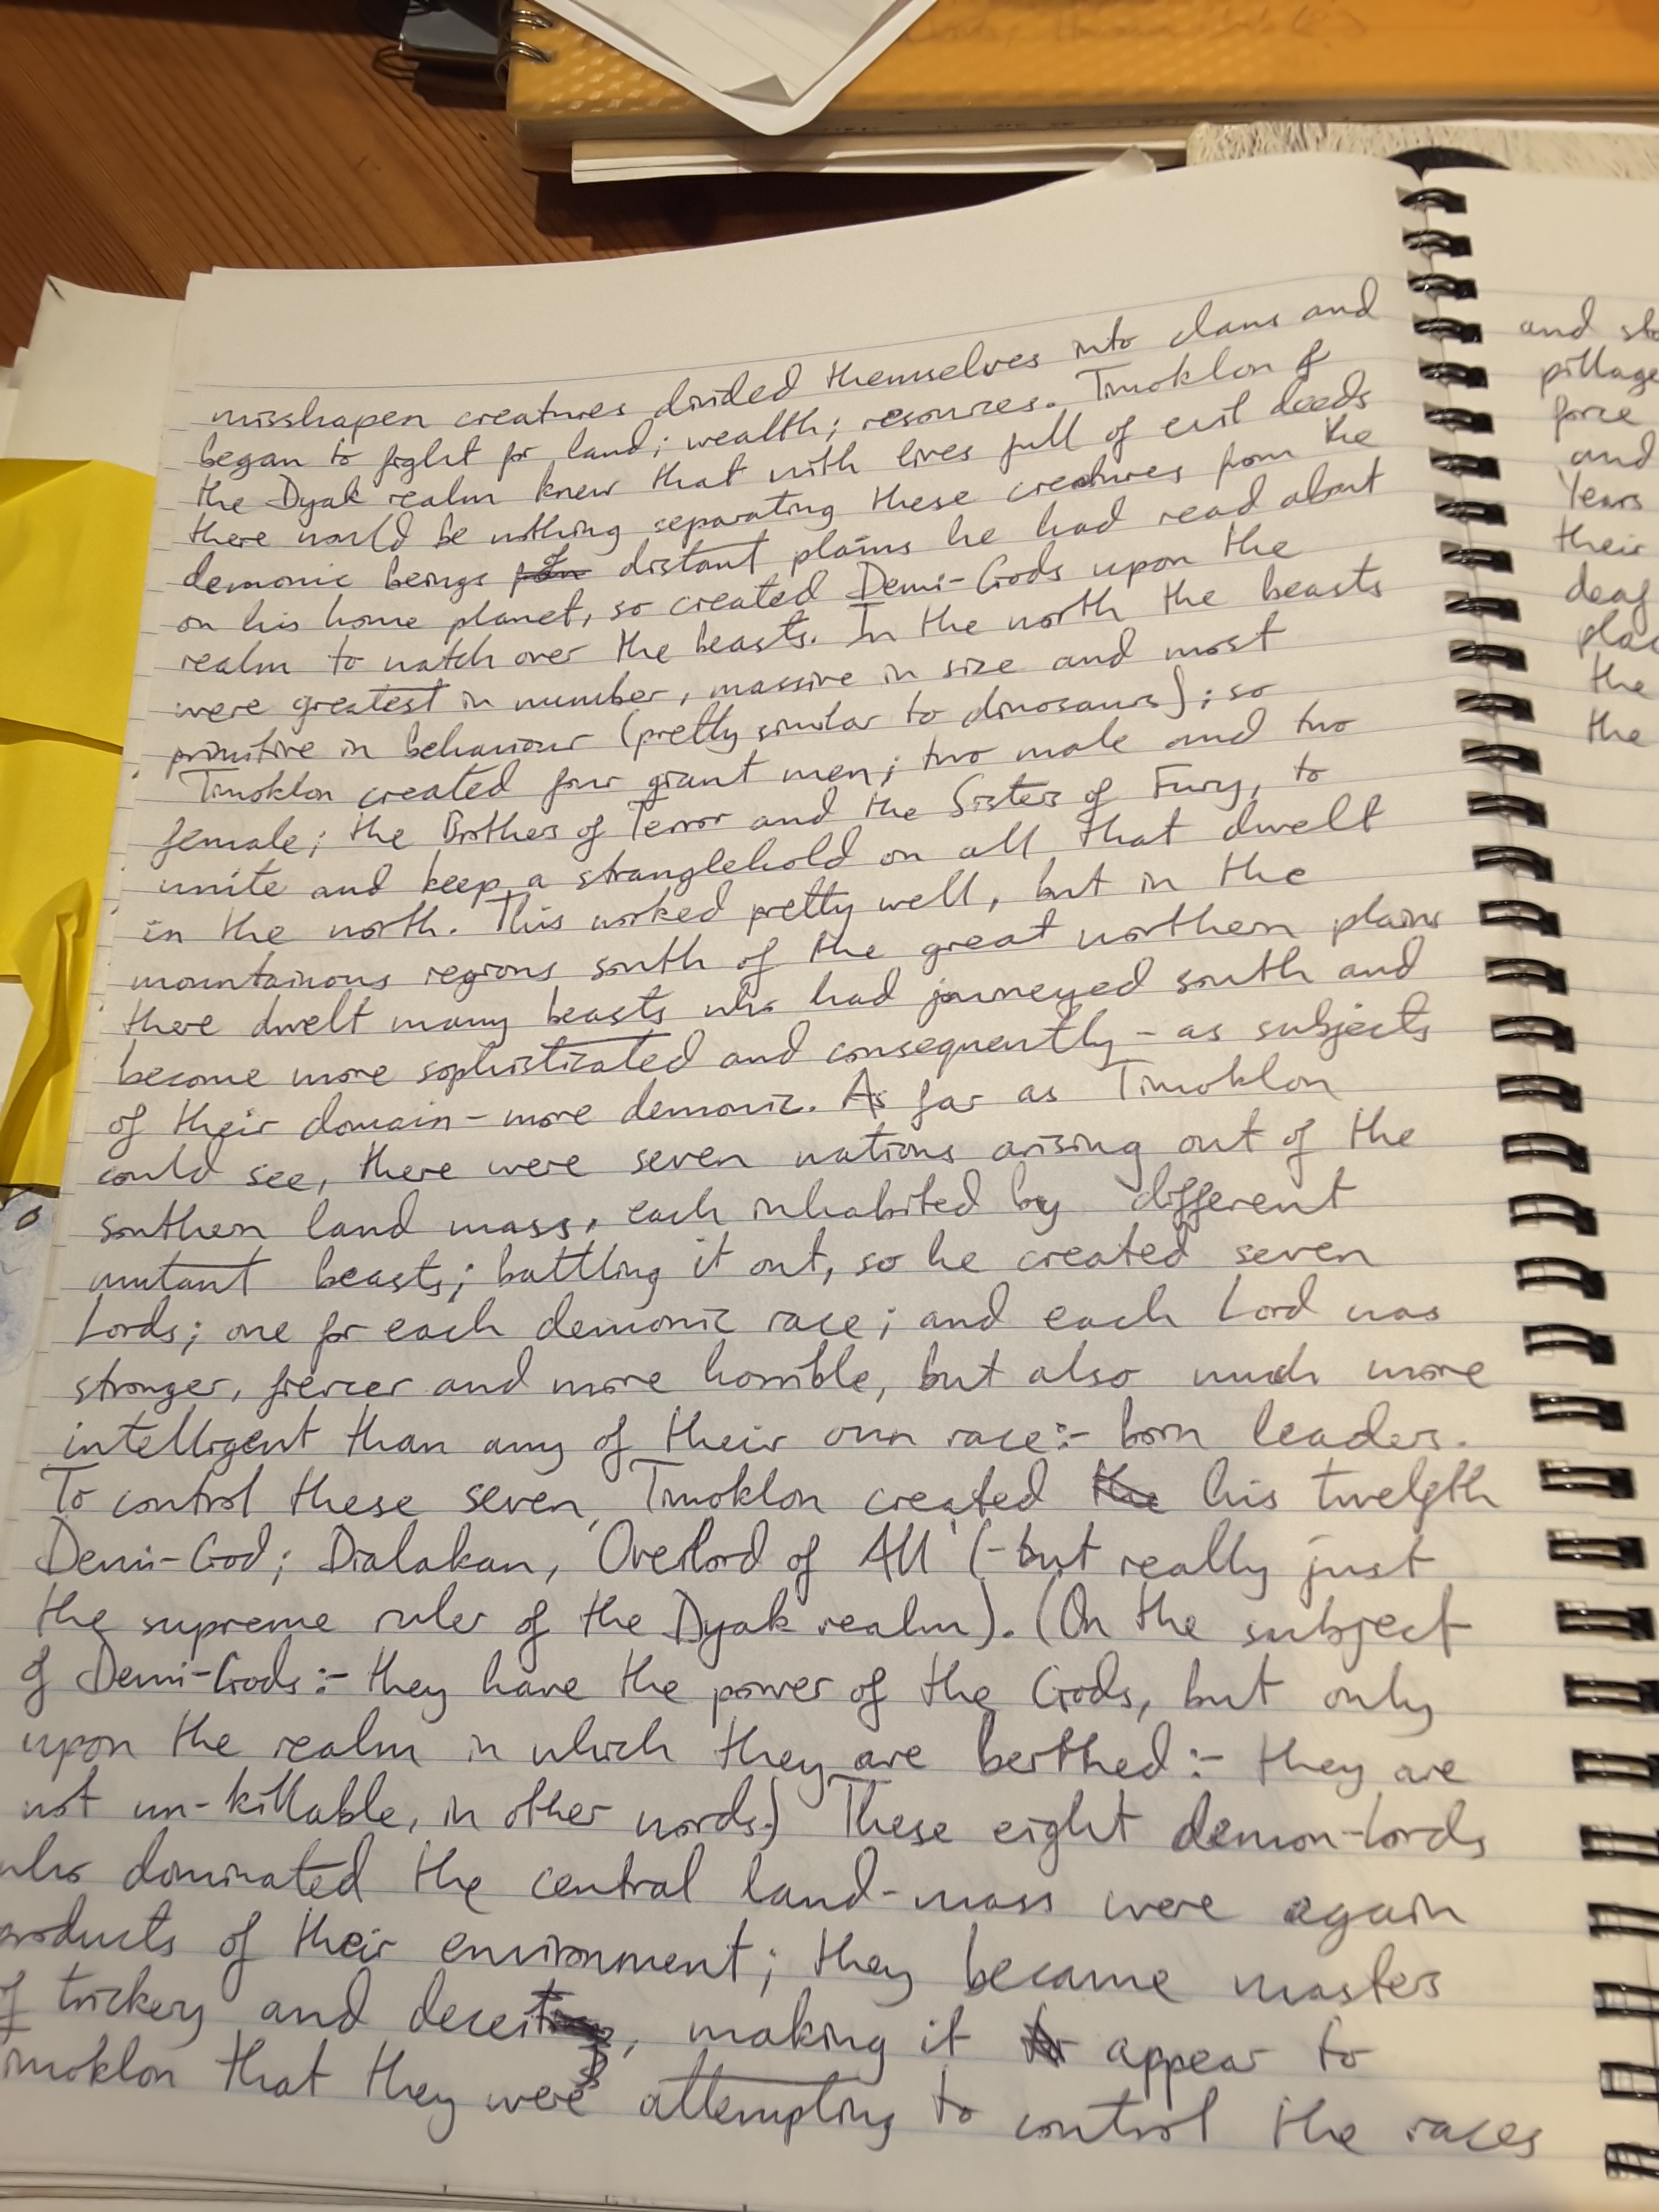 misshapen creatures divided themselves into clans and
began to fight for land; wealth; resources. Timoklon of
the Dyak realm knew that with lives full of evil deeds
there would be nothing separating these creatures from the
demonic beings of distant plains he had read about
on his home planet, so created Demi-Gods upon the
realm to watch over the beasts. In the north the beasts
were greatest in number, massive in size and most
primitive in behaviour (pretty similar to dinosaurs); so
Timoklon created four giant men; two male and two
female; the Brothers of Terror and the Sisters of Fury, to
unite and keep a stranglehold on all that dwelt
in the north. This worked pretty well, but in the
mountainous regions south of the great northern plains
there dwelt many beasts who had journeyed south and
become more sophisticated and consequently - as subjects
of their domain - more demonic. As far as Timoklon
could see, there were seven nations arising out of the
southern land mass, each inhabited by different
mutant beasts; battling it out, so he created seven
Lords; one for each demonic race; and each Lord was
stronger, fiercer and more horrible, but also much more
intelligent than any of their own race:- born leaders.
To control these seven, Timoklon created his twelfth
Demi-God; Dialakan, 'Overlord of All' (-but really just
the supreme ruler of the Dyak realm). (On the subject
of Demi-Gods:- they have the power of the Gods, but only
upon the realm in which they are berthed:- they are
not un-killable, in other words.) These eight demon-lords
who dominated the central land-mass were again
products of their environment; they became masters
of trickery and deceit, making it appear to
Timoklon that they were attempting to control the races
and
pillage
force
and
Years
their
deaf
the
the